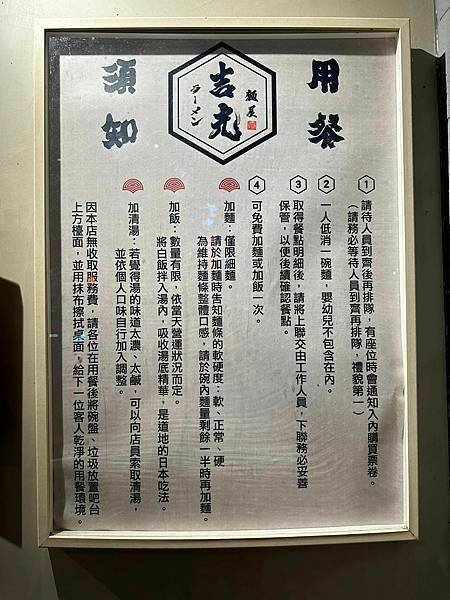 用餐
須知
麵屋
吉光
ラーメン
① 請待人員到齊後再排隊，有座位時會通知入內購買票卷。
（請務必等待人員到齊再排隊，禮貌第一）
② 一人低消一碗麵，嬰幼兒不包含在內。
③ 取得餐點明細後，請將上聯交由工作人員，下聯務必妥善
保管，以便後續確認餐點。
④ 可免費加麵或加飯一次。
加麵：僅限細麵。
請於加麵時告知麵條的軟硬度：軟、正常、硬
為維持麵條整體口感，請於碗內麵量剩餘一半時再加麵。
加飯：數量有限，依當天營運狀況而定。
將白飯拌入湯內，吸收湯底精華，是道地的日本吃法。
加清湯：若覺得湯的味道太濃、太鹹，可以向店員索取清湯，
並依個人口味自行加入調整。
因本店無收取服務費，請各位在用餐後將碗盤、垃圾放置吧台
上方檯面，並用抹布擦拭桌面，給下一位客人乾淨的用餐環境。